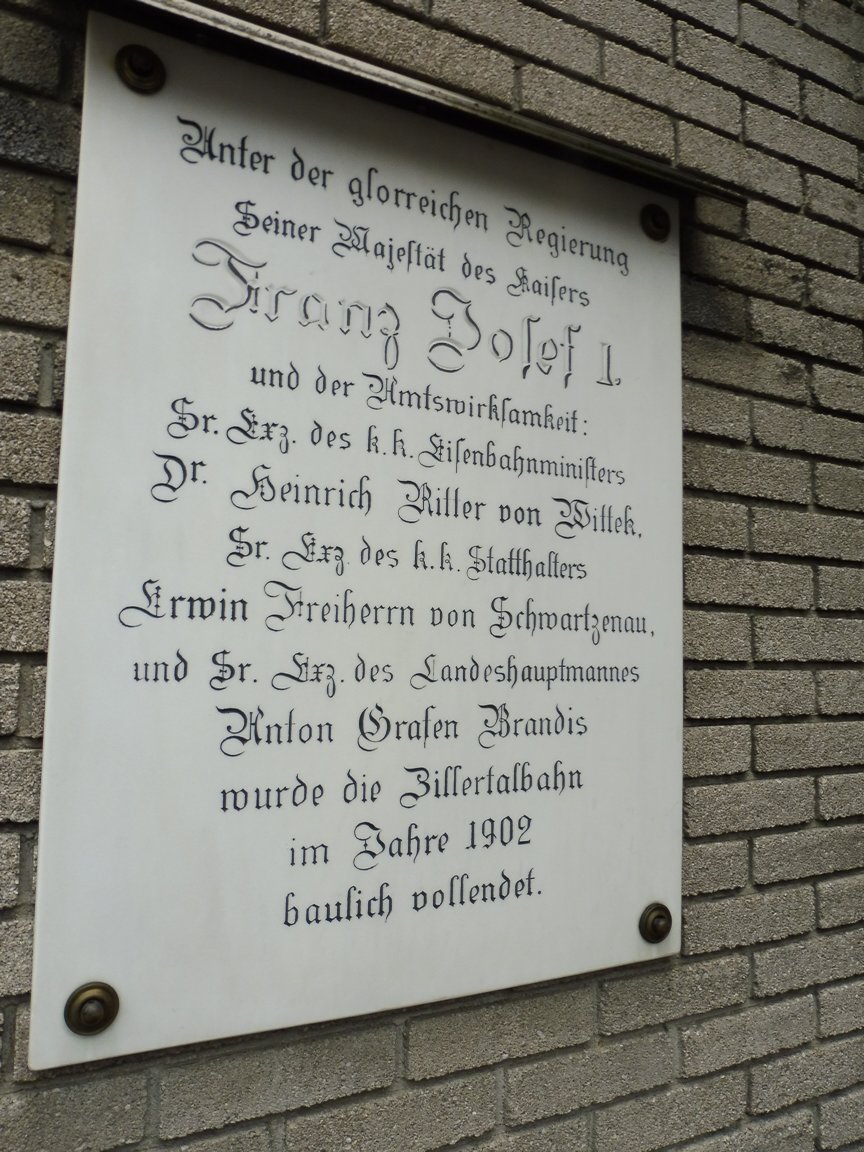 Unter der glorreichen Regierung
Seiner Majeſtät des Kaiſers
Franz Joſef I.
und der Amtswirkſamkeit:
Sr. Exz. des k. k. Eiſenbahnminiſters
Dr. Heinrich Ritter von Wittek,
Sr. Exz. des k. k. Statthalters
Erwin Freiherrn von Schwartzenau,
und Sr. Exz. des Landeshauptmannes
Anton Grafen Brandis
wurde die Zillertalbahn
im Jahre 1902
baulich vollendet.